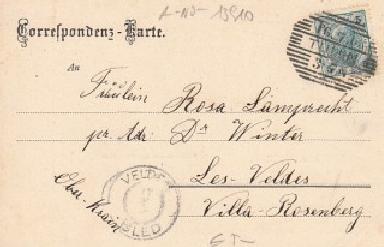 Correspondenz-Karte.
An
Fräulein Rosa Lamprecht
per Adr. Dr Winter
Les-Veldes
Villa-Rosenberg
Ober-Krain
VELDES
BLED